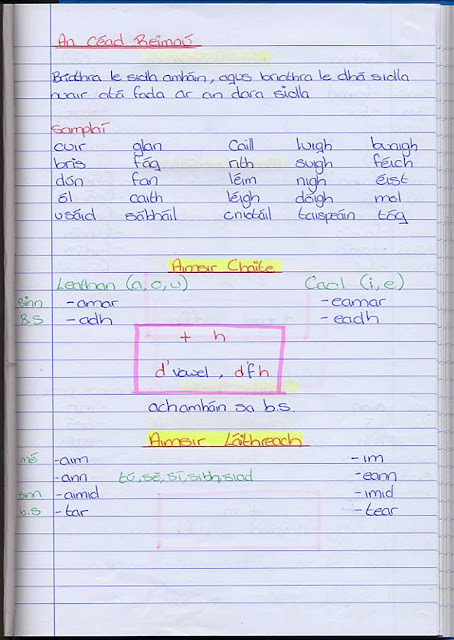 An Céad Reimniú
Briathra le siolla amháin, agus briathra le dhá siolla
nuair atá fada ar an dara siolla
Samplaí
cuir glan Caill luigh buaigh
bris fág rith suigh féich
dún fan léim nigh éist
ól caith léigh dóigh mol
usáid sábháil cniotáil taispeáin tóg
Aimsir Chaite
Leathan (a, o, u) Caol (i, e)
sinn -amar -eamar
B.S -adh -eadh
+ h
d' vowel, d'fh
ach amháin sa b.s.
Aimsir Láithreach
mé -aim -im
-ann tú, sé, sí, sibh, siad -eann
sinn -aimid -imid
b.s -tar -tear